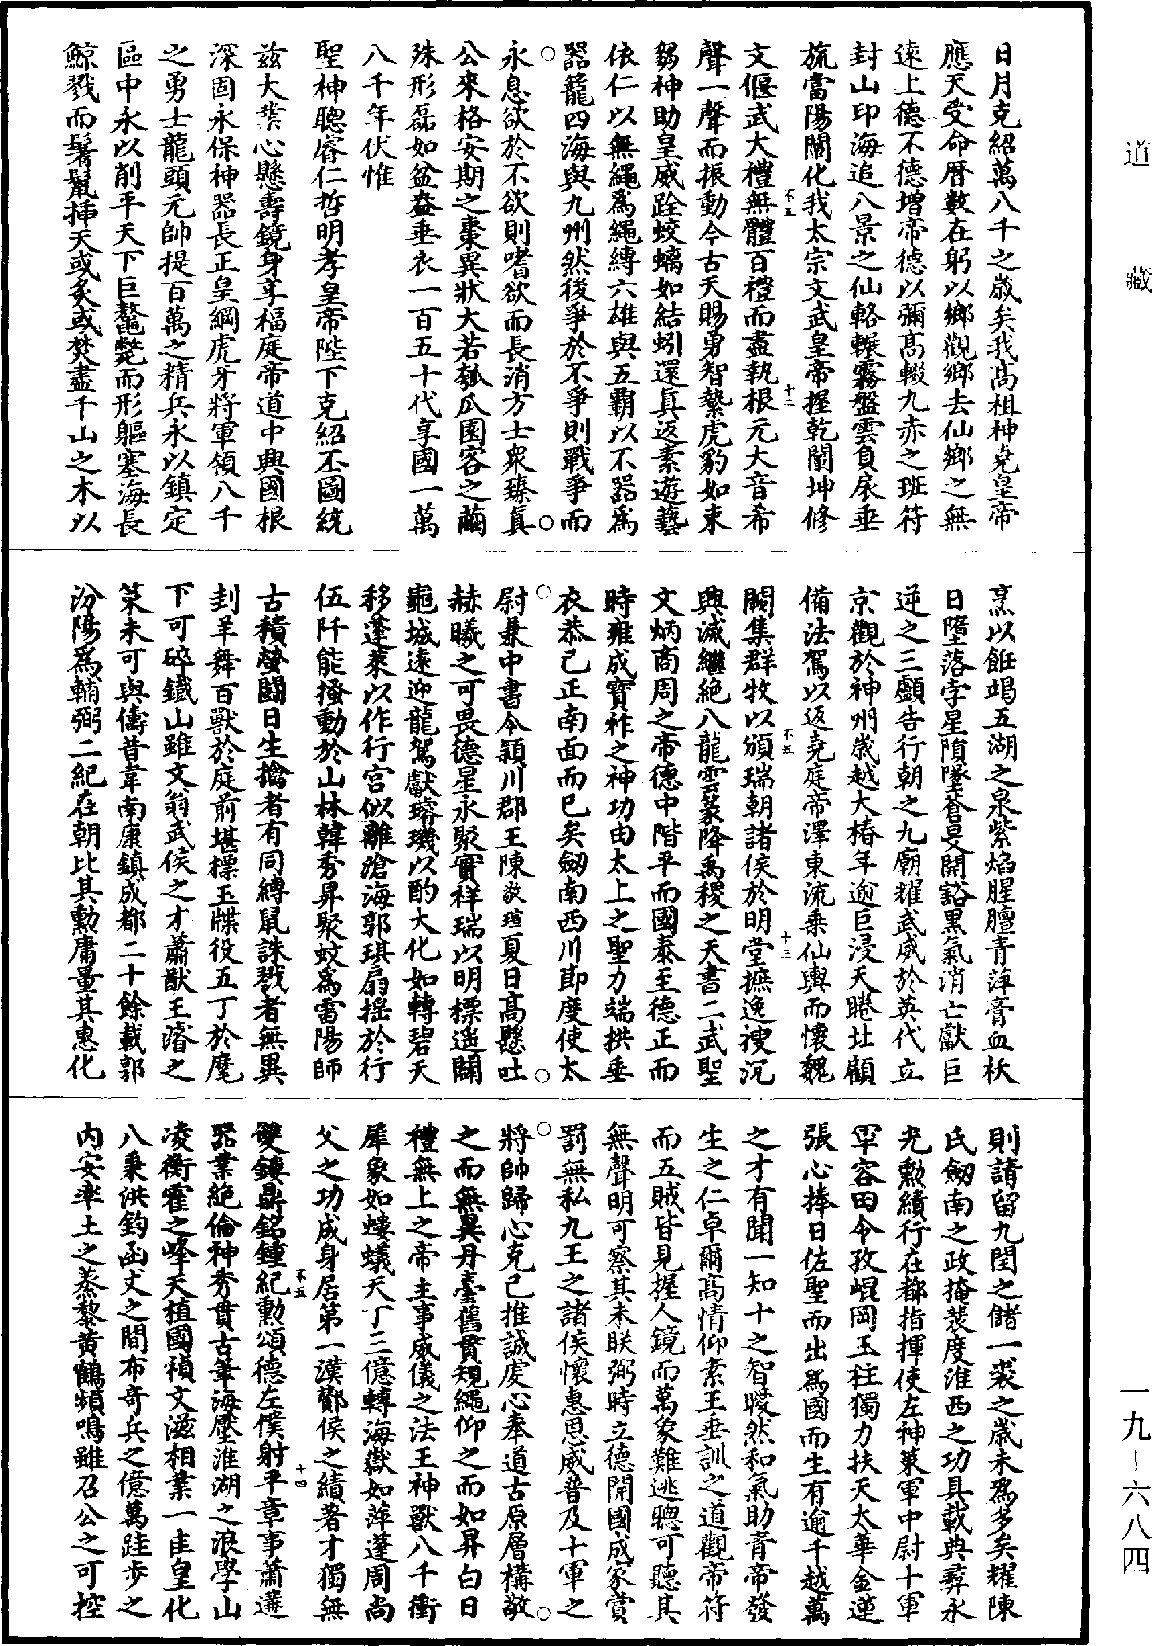 道藏
日月克紹萬八千之歲矣我高祖神堯皇帝
應天受命曆數在躬以鄉觀鄉去仙鄉之無
遠上德不德增帝德以彌高輟九赤之班符
封山印海追八景之仙輅輾霧盤雲負扆垂
旒當陽闡化我太宗文武皇帝握乾闡坤修
文偃武大禮無體百禮而盡執根元大音希
聲一聲而振動今古天賜勇智縶虎豹如束
芻神助皇威跧蛟螭如結蚓還真返素遊藝
依仁以無繩為繩縛六雄與五霸以不器為
器籠四海與九州然後爭於不爭則戰爭而
永息欲於不欲則嗜欲而長消方士衆臻真
公來格安期之棗異狀大若瓠瓜園客之繭
殊形磊如盆盎垂衣一百五十代享國一萬
八千年伏惟
聖神聰睿仁哲明孝皇帝陛下克紹丕圖統
茲大業心懸壽鏡身享福庭帝道中興國根
深固永保神器長正皇綱虎牙將軍領八千
之勇士龍頭元帥提百萬之精兵永以鎮定
區中永以削平天下巨鼇斃而形軀塞海長
鯨戮而鬐鬣插天或炙或焚盡千山之木以
烹以飪竭五湖之泉紫焰腥膻青萍膏血秋
日墮落孛星隕墜蒼旻開豁黑氣消亡獻巨
逆之三顱告行朝之九廟耀武威於英代立
京觀於神州歲越大椿年逾巨浸天睠北顧
備法駕以返堯庭帝澤東流乘仙輿而懷魏
闕集群牧以頒瑞朝諸侯於明堂摭逸搜沉
興滅繼絕八龍雲篆降禹稷之天書二武聖
文炳商周之帝德中階平而國泰至德正而
時雍成寶祚之神功由太上之聖力端拱垂
衣恭己正南面而已矣劒南西川節度使太
尉兼中書令潁川郡王陳敬瑄夏日高懸吐
赫曦之可畏德星永聚實祥瑞以明標遥闢
龜城遠迎龍駕獻璿璣以酌大化如轉碧天
移蓬萊以作行宮似離滄海郭琪扇搖於行
伍阡能搔動於山林韓秀昇聚蚊為雷陽師
古積螢鬬日生擒者有同縛鼠誅戮者無異
刲羊舞百獸於庭前堪標玉牒役五丁於麾
下可碎鐵山雖文翁武侯之才蕭猷王濬之
策未可與儔昔韋南康鎮成都二十餘載郭
汾陽為輔弼二紀在朝比其勳庸量其惠化
則請留九閏之儲一裘之歲未為多矣耀陳
氏劒南之政掩裴度淮西之功具載典彝永
光勳績行在都指揮使左神策軍中尉十軍
軍容田令孜崐岡玉柱獨力扶天太華金蓮
張心捧日佐聖而出為國而生有逾千越萬
之才有聞一知十之智㬉然和氣助青帝發
生之仁卓爾高情仰素王垂訓之道觀帝符
而五賊皆見握人鏡而萬象難逃聰可聽其
無聲明可察其未眹弼時立德開國成家賞
罰無私九王之諸侯懷惠恩威普及十軍之
將帥歸心克己推誠虔心奉道古原層構敬
之而無異丹臺舊貫規繩仰之而如昇白日
禮無上之帝主事威儀之法王神獸八千衝
犀象如螻蟻天丁三億轉海嶽如萍蓬周尚
父之功成身居第一漢酇侯之績著才獨無
雙鏤鼎銘鍾紀勳頌德左僕射平章事蕭遘
器業絕倫神秀貫古筆海壓淮湖之浪學山
凌衡霍之峰天植國禎文滋相業一匡皇化
八秉洪鈞函丈之間布奇兵之億萬跬步之
内安率土之蒸黎黃鶴頻鳴雖召公之可控
不五
十二
不五
十三
不五
十四
一九-六八四